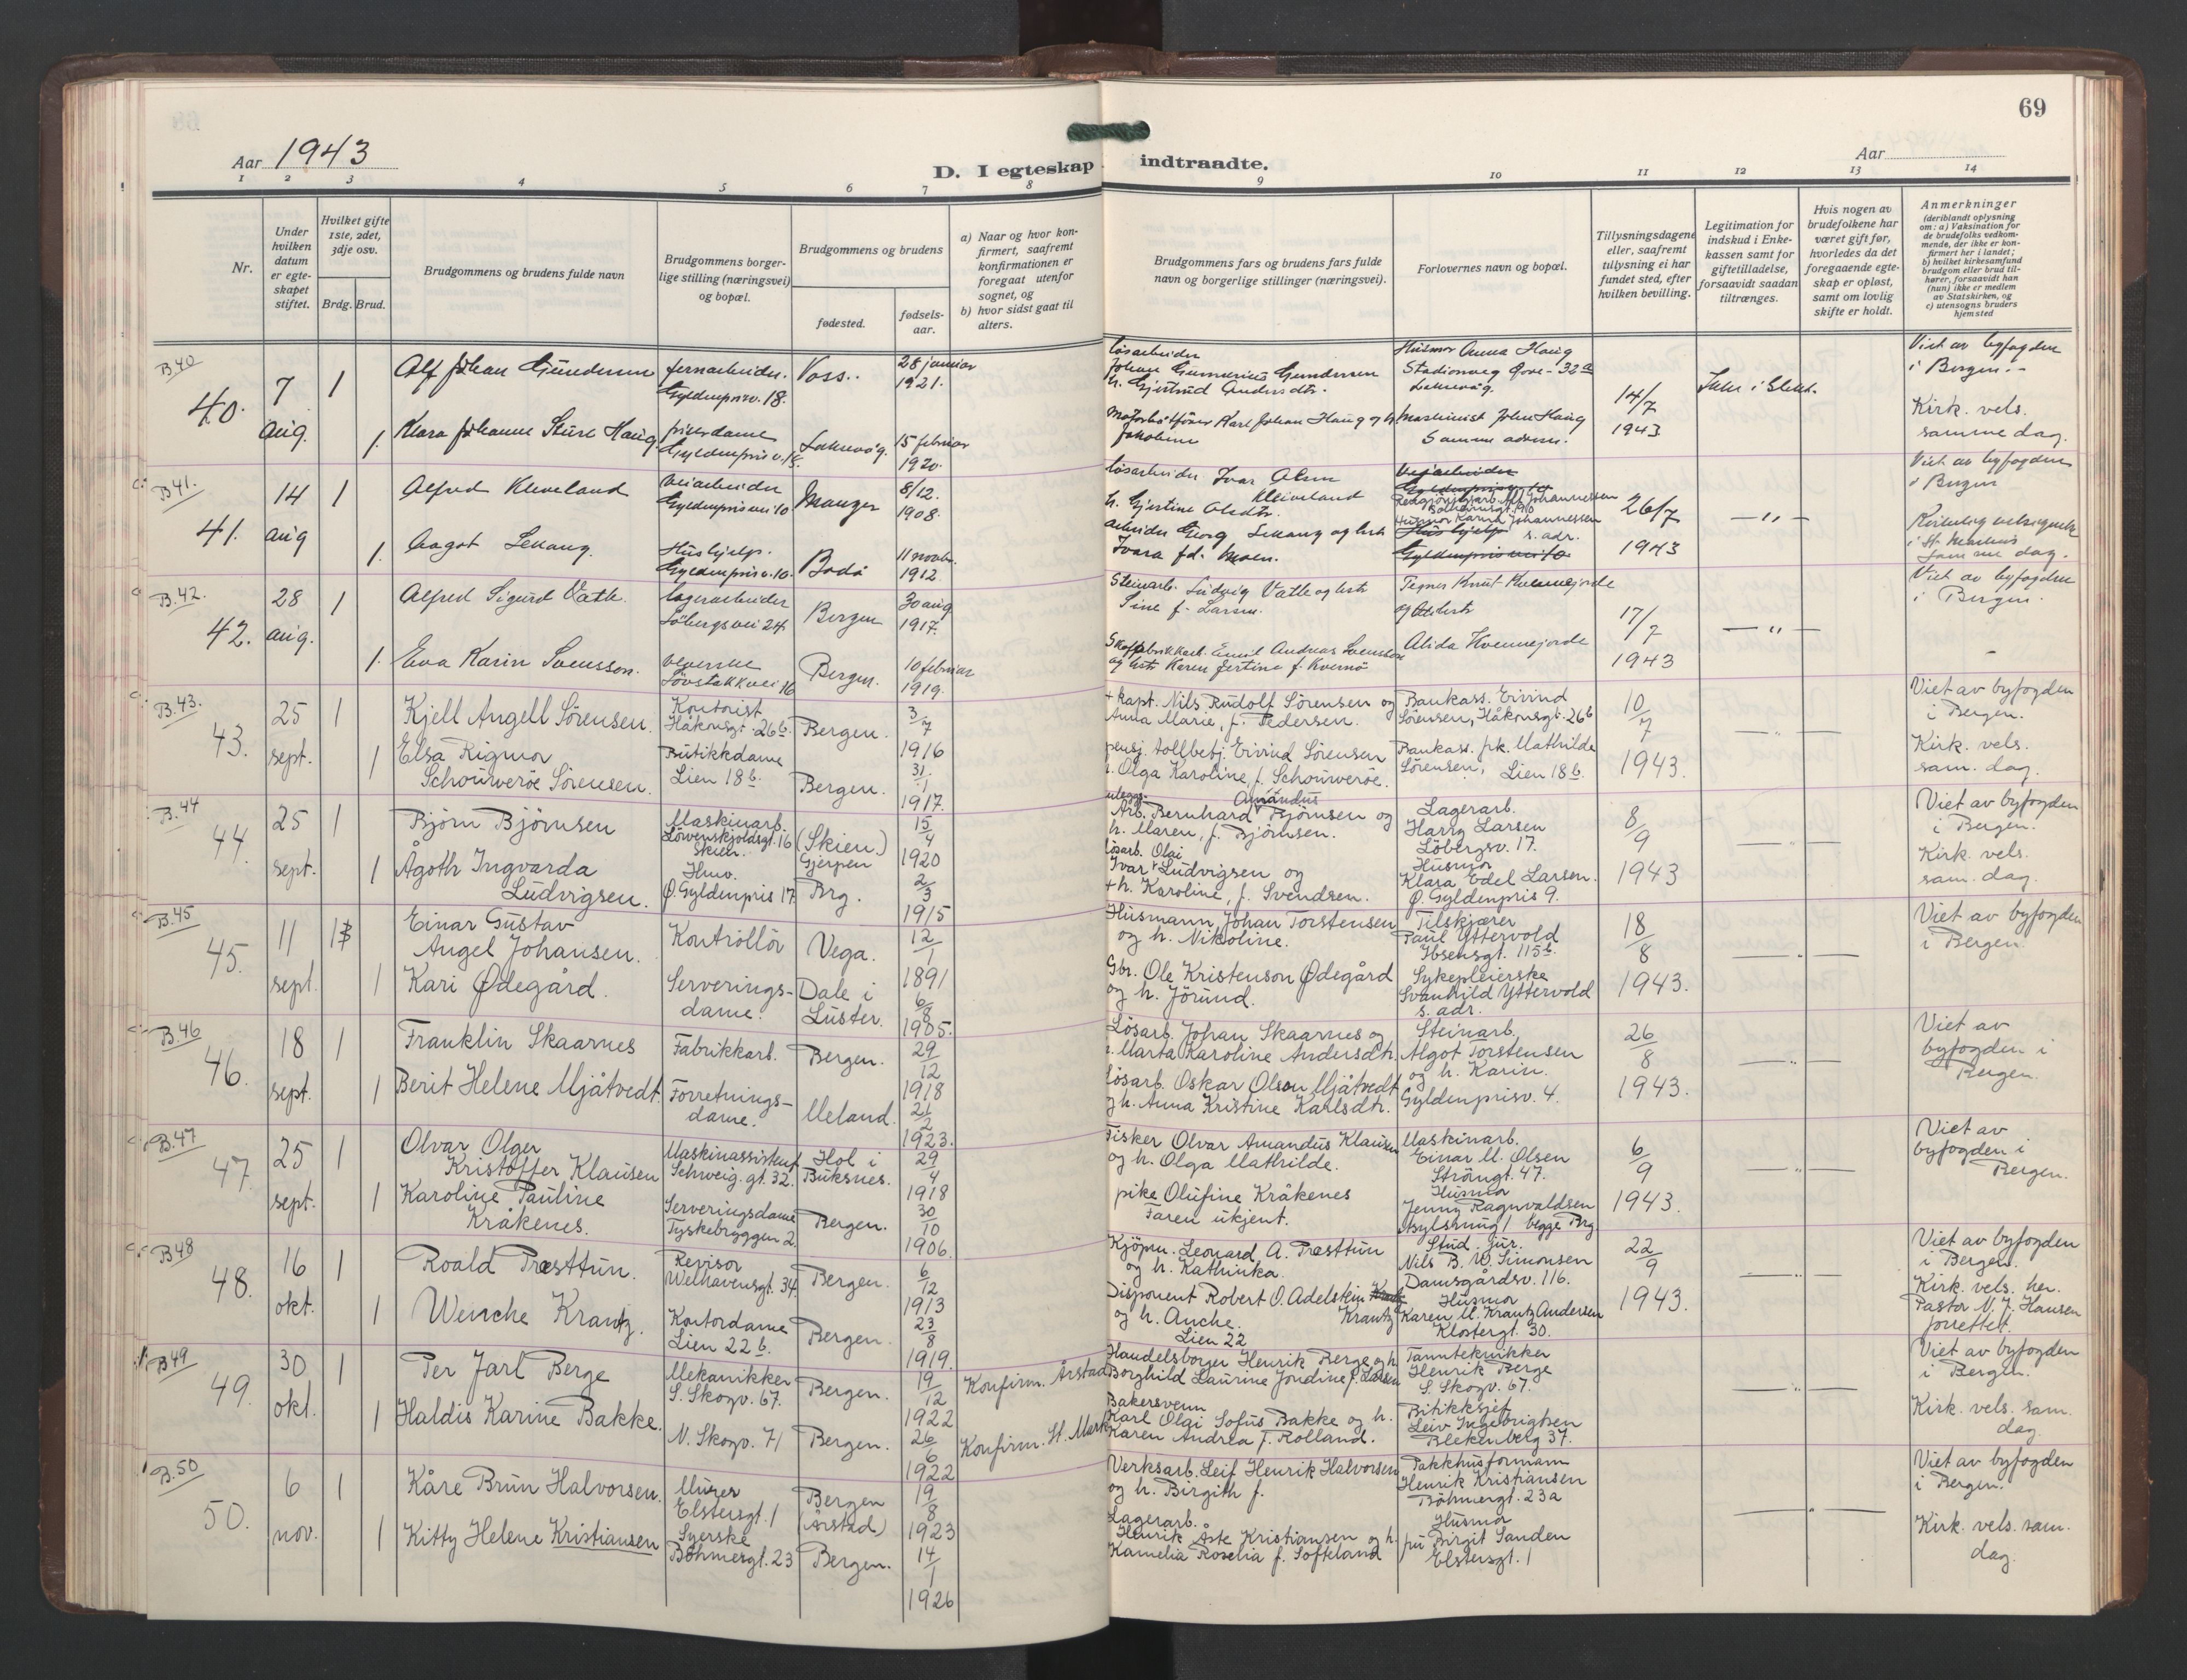 69
Aar 1943
D. I egteskap indtraadte.
Aar
1 2 3 4 5 6 7 8 9 10 11 12 13 14
Nr.
Under hvilken datum er egteskapet stiftet.
Hvilket gifte 1ste, 2det, 3dje osv.
Brdg. Brud.
Brudgommens og brudens fulde navn
Brudgommens borgerlige stilling (næringsvei) og bopæl.
Brudgommens og brudens
fødested.
fødselsaar.
a) Naar og hvor konfirmert, saafremt konfirmationen er foregaat utenfor sognet, og
b) hvor sidst gaat til alters.
Brudgommens fars og brudens fars fulde navn og borgerlige stillinger (næringsvei).
Forlovernes navn og bopæl.
Tillysningsdagene eller, saafremt tillysning ei har fundet sted, efter hvilken bevilling.
Legitimation for indskud i Enkekassen samt for giftetilladelse, forsaavidt saadan tiltrænges.
Hvis nogen av brudefolkene har været gift før, hvorledes da det foregaaende egteskap er opløst, samt om lovlig skifte er holdt.
Anmerkninger
(deriblandt oplysning om: a) Vaksination for de brudefolks vedkommende, der ikke er konfirmert her i landet; b) hvilket kirkesamfund brudgom eller brud tilhører, forsaavidt han (hun) ikke er medlem av Statskirken, og c) utensogns bruders hjemsted
B.40
40. 7 aug. 1
Alf Johan Gundersen jernarbeider. Gyldenprisv. 18. Voss. 28 januar 1921.
løsarbeider Johan Gunnerius Gundersen h. Gjertrud Andersdtr.
Husmor Anna Haug Stadionveg 32a Laksevåg.
14/7 1943
Ikke i slekt.
Viet av byfogden i Bergen.
1. Klara Johanne Sture Haug. Gyldenpris v. 18. Laksevåg. 15 februar 1920.
Motorbåtfører Karl Johan Haug og h Jakobine
Maskinist John Haug Samme adresse.
Kirk. vels. samme dag.
B.41.
41. 14 aug 1
Alfred Kleveland Veiarbeider Gyldenprisvei 10 Manger 8/12. 1908.
løsarbeider Ivar Olsen Kleiveland h. Gjertine Olsdtr.
Alf Johannessen
Husmor Karna Johannessen s. adr.
26/7 1943
— " —
Viet av byfogden i Bergen
1. Aagot Lekang. Hushjelp. Gyldenpris v. 10. Bodø 11 novbr. 1912
Arbeider Georg Lekang og hustr Ivara fd. Moen.
Kirkelig velsignet i St. Markus samme dag.
B.42.
42. 28 aug. 1
Alfred Sigurd Vatle. lagerarbeider Løbergsvei 24. Bergen 30 aug 1917.
Steinarb. Ludvig Vatle og hustr Sine f. Larsen.
Tegner Knut Kvennejorde og hustr
17/7 1943
— " —
Viet av byfogden i Bergen.
1. Eva Karin Svensson. veverske Løvstakkvei 16 Bergen. 10 februar 1919.
Skofabrikkarb. Emil Andreas Svensson og hustr Karen Jertine f. Kvernø
Alida Kvennejorde
B.43.
43. 25 sept. 1
Kjell Angell Sørensen. Kontorist Håkonsgt. 26b. Bergen. 3/7 1916
+ kapt. Nils Rudolf Sørensen og Anna Marie, f. Pedersen.
Bankass. Eivind Sørensen, Håkonsgt. 26b
10/7 1943.
— " —
Viet av byfogden i Bergen.
1 Elsa Rigmor Schouwerøe Sørensen. Butikkdame Lien 18b. Bergen. 31/1 1917.
pensj. tollbetj. Eivind Sørensen h. Olga Karoline, f. Schouwerøe.
Bankass. frk. Mathilde Sørensen, Lien 18b.
Kirk. vels. sam. dag.
B.44
44. 25 sept. 1
Bjørn Bjørnsen Maskinarb. Løvenskjoldsgt. 16 Skien. (Skien.) Gjerpen 15/4 1920
anleggs. Arb. Bernhard Amandus Bjørnsen og h. Maren, f. Bjørnsen.
Lagerarb. Harry Larsen Løbergsv. 17.
8/9 1943
— " —
Viet av byfogden i Bergen.
1 Ågoth Ingvarda Ludvigsen. Hmv. Ø. Gyldenpris 17 Brg. 2/3 1915
løsarb. Olai Ivar Ludvigsen og + h. Karoline, f. Svendsen.
Husmor Klara Edel Larsen. Ø. Gyldenpris 9.
Kirk. vels. sam. dag.
B.45
45. 11 sept. 1
Einar Gustav Angel Johansen. Kontrollør Vega. 12/1 1891
Husmann Johan Torstensen og h. Nikoline.
Tilskjærer Paul Yttervold Ibsensgt. 115b.
18/8 1943.
— " —
Viet av byfogden i Bergen
1 Kari Ødegård. Serveringsdame. Dale i Luster. 6/8 1905.
Gbr. Ole Kristenson Ødegård og h. Jørund.
Sykepleierske Svanhild Yttervold s. adr.
B.46
46. 18 sept. 1
Franklin Skaarnes Fabrikkarb. Bergen. 29/12 1918
Løsarb. Johan Skaarnes og h. Marta Karoline Andersdtr.
Steinarb. Algot Torstensen og h. Karin. Gyldenprisv. 4.
26/8 1943.
— " —
Viet av byfogden i Bergen.
1 Berit Helene Mjåtvedt. Forretningsdame. Meland. 21/2 1923.
løsarb. Oskar Olson Mjåtvedt og h. Anna Kristine Karlsdtr.
B.47
47. 25 sept. 1
Olvar Olger Kristoffer Klausen Maskinassistent Schweig. gt. 32. Hol i Buksnes. 29/4 1918
Fisker Olvar Amandus Klausen og h. Olga Mathilde.
Maskinarb. Einar M. Olsen Strangt. 47.
6/9 1943.
— " —
Viet av byfogden i Bergen.
1 Karoline Pauline Kråkenes. Serveringsdame Tyskebryggen 2. Bergen. 30/10 1906.
pike Olufine Kråkenes Faren ukjent.
Husmor Jenny Ragnvaldsen begge Brg.
B48
48. 16 okt. 1
Roald Præsttun. Revisor Welhavensgt. 34 Bergen. 6/12 1913
Kjøpm. Leonard A. Præsttun og h. Kathinka.
Stud. jur. Nils B. W. Simonsen Damsgårdsv. 116.
22/9 1943.
— " —
Viet av byfogden i Bergen.
1 Wenche Krantz. Kontordame Lien 22b. Bergen. 23/8 1919.
Disponent Robert O. Adelstein Krantz og h. Anche. Lien 22
Husmor Karen M. Krantz Andersen Klostergt. 30.
Kirk. vels. her. Pastor N. J. Hansen forrettet.
B49
49. 30 okt. 1
Per Jarl Berge Mekanikker S. Skogv. 67. Bergen. 19/12 1922 Konfirm. Årstad
Handelsborger Henrik Berge og h. Borghild Laurine Jordine f. Larsen
Tanntekniker Henrik Berge S. Skogv. 67.
— " —
Viet av byfogden i Bergen.
1 Haldis Karine Bakke. N. Skogv. 71 Bergen. 26/6 1922 Konfirm. St. Mark
Bakersvenn Karl Olai Sofus Bakke og h. Karen Andrea f. Rolland.
Butikksjef Leiv Ingebrigtsen Blekenberg 37.
Kirk. vels. sam. dag.
B.50
50. 6 nov. 1
Kåre Brun Halvorsen. Murer Elstersgt. 1 Bergen (Årstad) 19/8 1923
Verksarb. Leif Henrik Halvorsen og h. Birgith f.
Pakkhusformann Henrik Kristiansen Böhmergt. 23a
— " —
Viet av byfogden i Bergen.
1 Kitty Helene Kristiansen Syerske Böhmergt. 23 Bergen. 14/1 1926
Lagerarb. Henrik Åste Kristiansen og h. Kamelia Roselia f. Softeland
Husmor fru Birgit Sanden Elstersgt. 1
Kirk. vels. sam. dag.